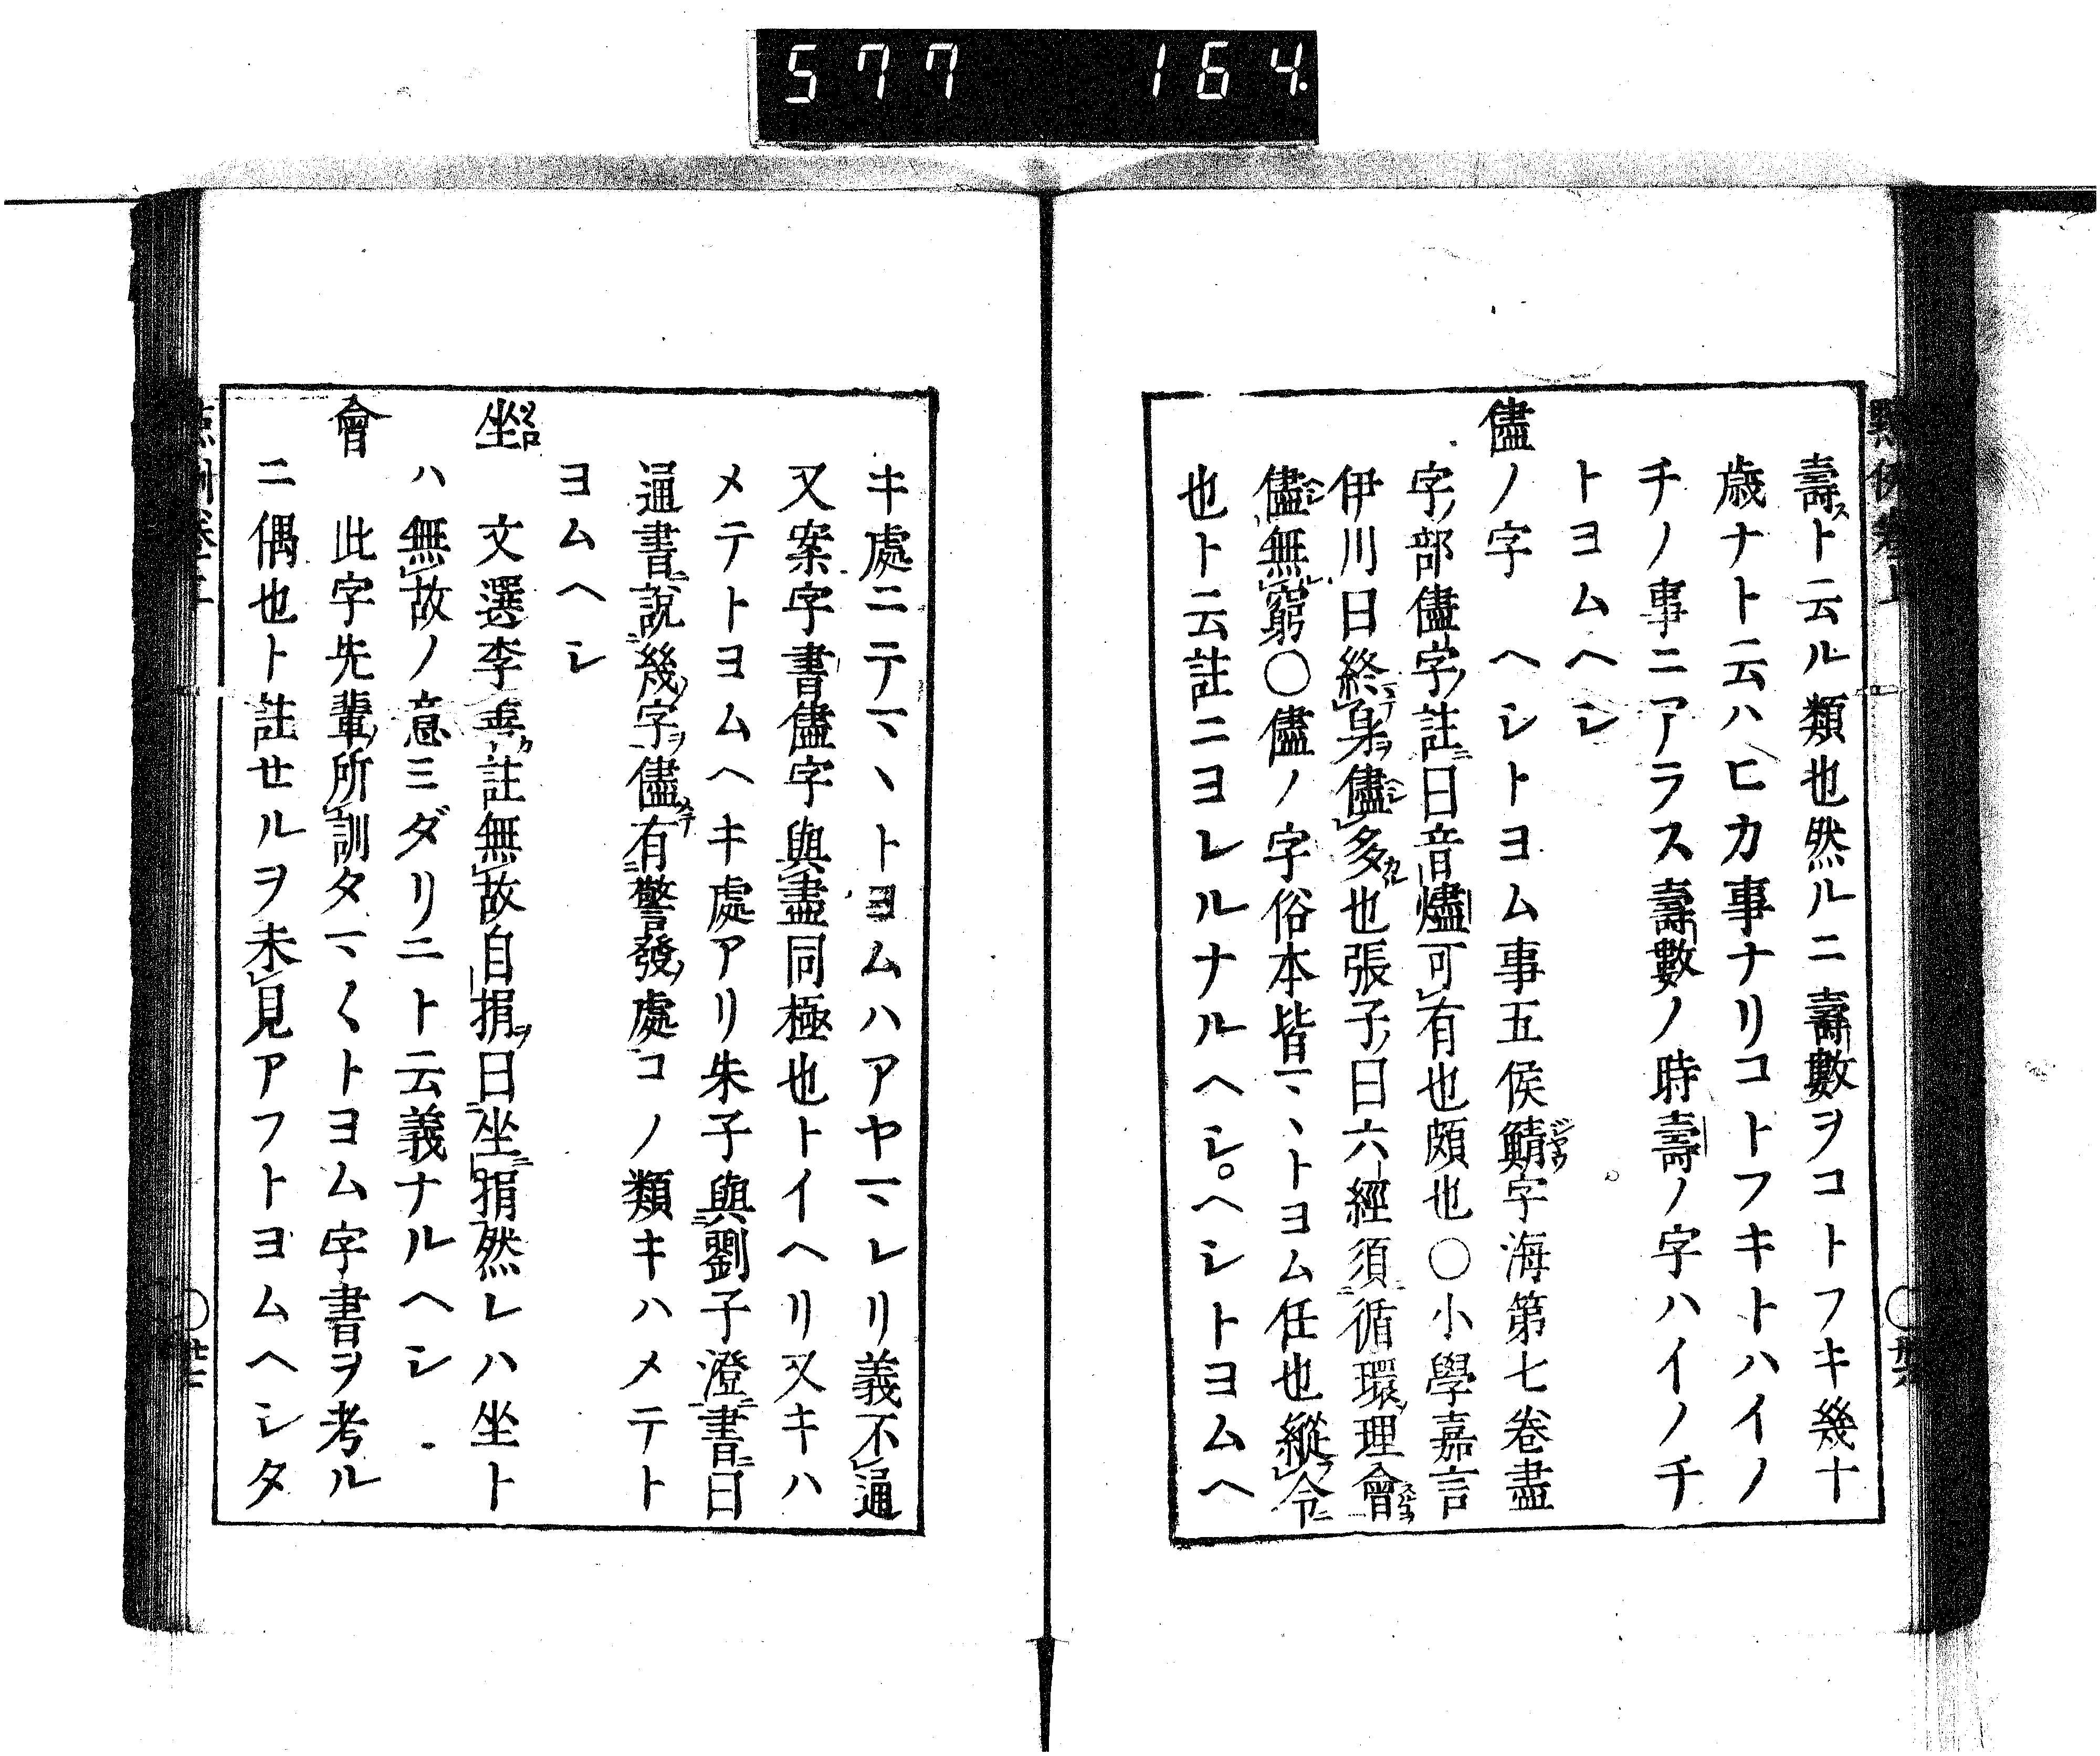 577 164
壽ト云ル類也然ルニ壽數ヲコトフキ幾十
歳ナト云ハヒカ事ナリコトフキトハイノ
チノ事ニアラス壽數ノ時壽ノ字ハイノチ
トヨムヘシ
儘ノ字 ヘシトヨム事五侯鯖字海第七卷盡
字部儘字註曰音燼可有也頗也〇小學嘉言
伊川曰終身儘多也張子曰六經須循環理會
儘無窮〇儘ノ字俗本皆マヽトヨム任也縱令
也ト云註ニヨレルナルヘシ。ヘシトヨムヘ
キ處ニテマヽトヨムハアヤマレリ義不通
又案字書儘字與盡同極也トイヘリ又キハ
メテトヨムヘキ處アリ朱子與劉子澄書曰
通書說幾字儘有警發處コノ類キハメテト
ヨムヘシ
坐 文選李善註無故自捐曰坐捐然レハ坐ト
ハ無故ノ意ミダリニト云義ナルヘシ
會 此字先輩所訓タマ〱トヨム字書ヲ考ル
ニ偶也ト註セルヲ未見アフトヨムヘシタ